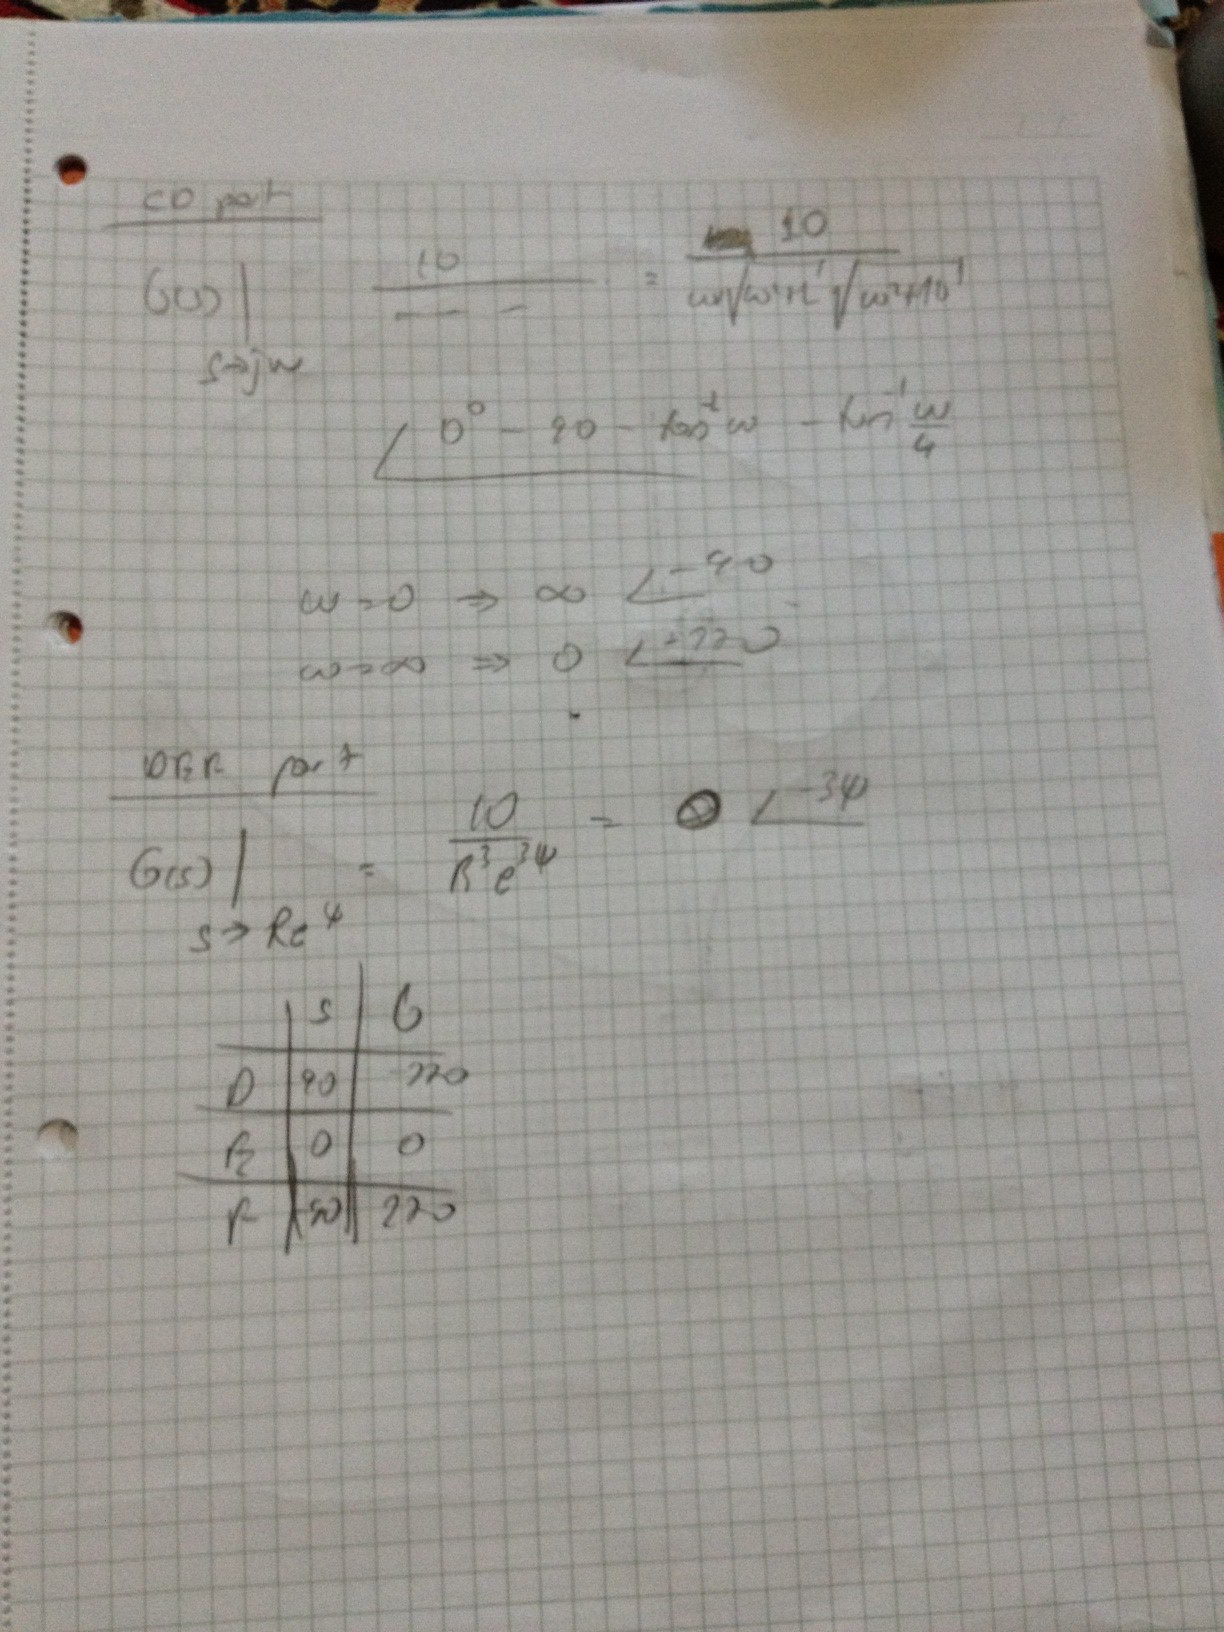 CD part
G(s)| 10 = 10
s→jω ω√ω²+1 √ω²+16
∠0° - 90 - tan⁻¹ω - tan⁻¹ ω/4
ω=0 ⇒ ∞ ∠-90
ω=∞ ⇒ 0 ∠-270
DER part
G(s)| = 10/R³e³ψ = 0 ∠-3ψ
s→Reψ
s G
D 90 -270
E 0 0
F -90 270